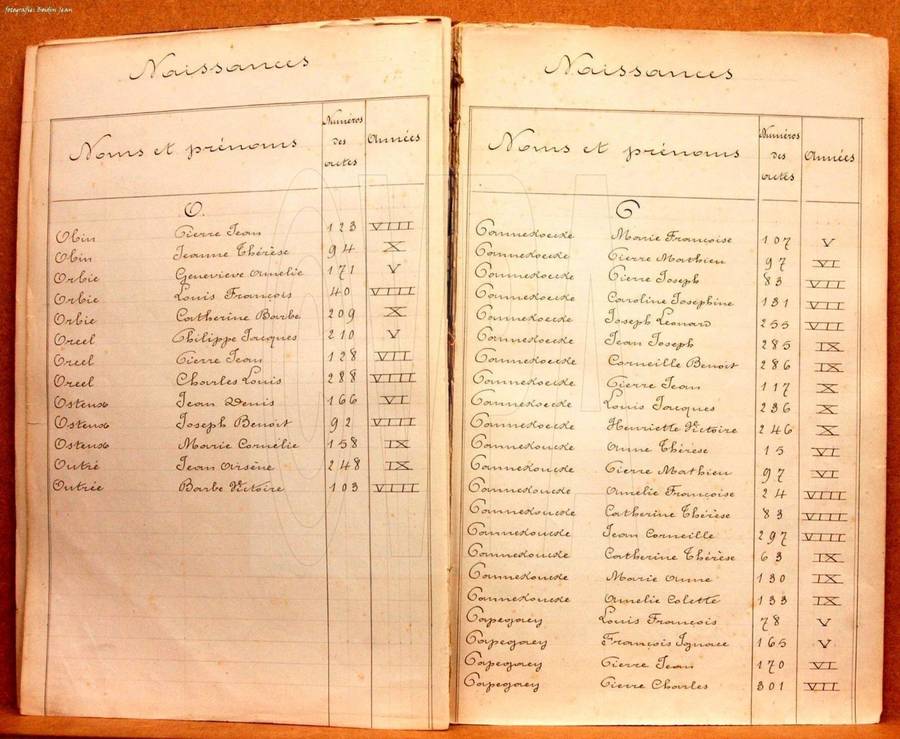 fotografie: Boidin Jean
Naissances
Noms et prénoms Numéros des actes Années
O.
Obin Pierre Jean 123 VIII
Obin Jeanne Thérèse 94 X
Orbie Genevieve Amelie 171 V
Orbie Louis François 40 VIII
Orbie Catherine Barbe 209 X
Oreel Philippe Jacques 210 V
Oreel Pierre Jean 128 VII
Oreel Charles Louis 288 VIII
Ostend Jean Denis 166 VI
Ostend Joseph Benoit 92 VIII
Ostend Marie Cornélie 158 IX
Outré Jean Arsène 248 IX
Outrée Barbe Victoire 103 VIII
Naissances
Noms et prénoms Numéros des actes Années
P
Pannekoecke Marie Françoise 107 V
Pannekoecke Pierre Mathieu 97 VI
Pannekoecke Pierre Joseph 83 VII
Pannekoecke Caroline Josephine 131 VII
Pannekoecke Joseph Leonard 255 VII
Pannekoecke Jean Joseph 285 IX
Pannekoecke Corneille Benoit 286 IX
Pannekoecke Pierre Jean 117 X
Pannekoecke Louis Jacques 236 X
Pannekoecke Henriette Victoire 246 X
Pannekoucke Anne Thérèse 15 VI
Pannekoucke Pierre Mathieu 97 VI
Pannekoucke Amélie Françoise 24 VIII
Pannekoucke Catherine Thérèse 83 VIII
Pannekoucke Jean Corneille 297 VIII
Pannekoucke Catherine Thérèse 63 IX
Pannekoucke Marie Anne 130 IX
Pannekoucke Amelie Colette 133 IX
Papegaey Louis François 78 V
Papegaey François Ignace 165 V
Papegaey Pierre Jean 170 VI
Papegaey Pierre Charles 301 VII